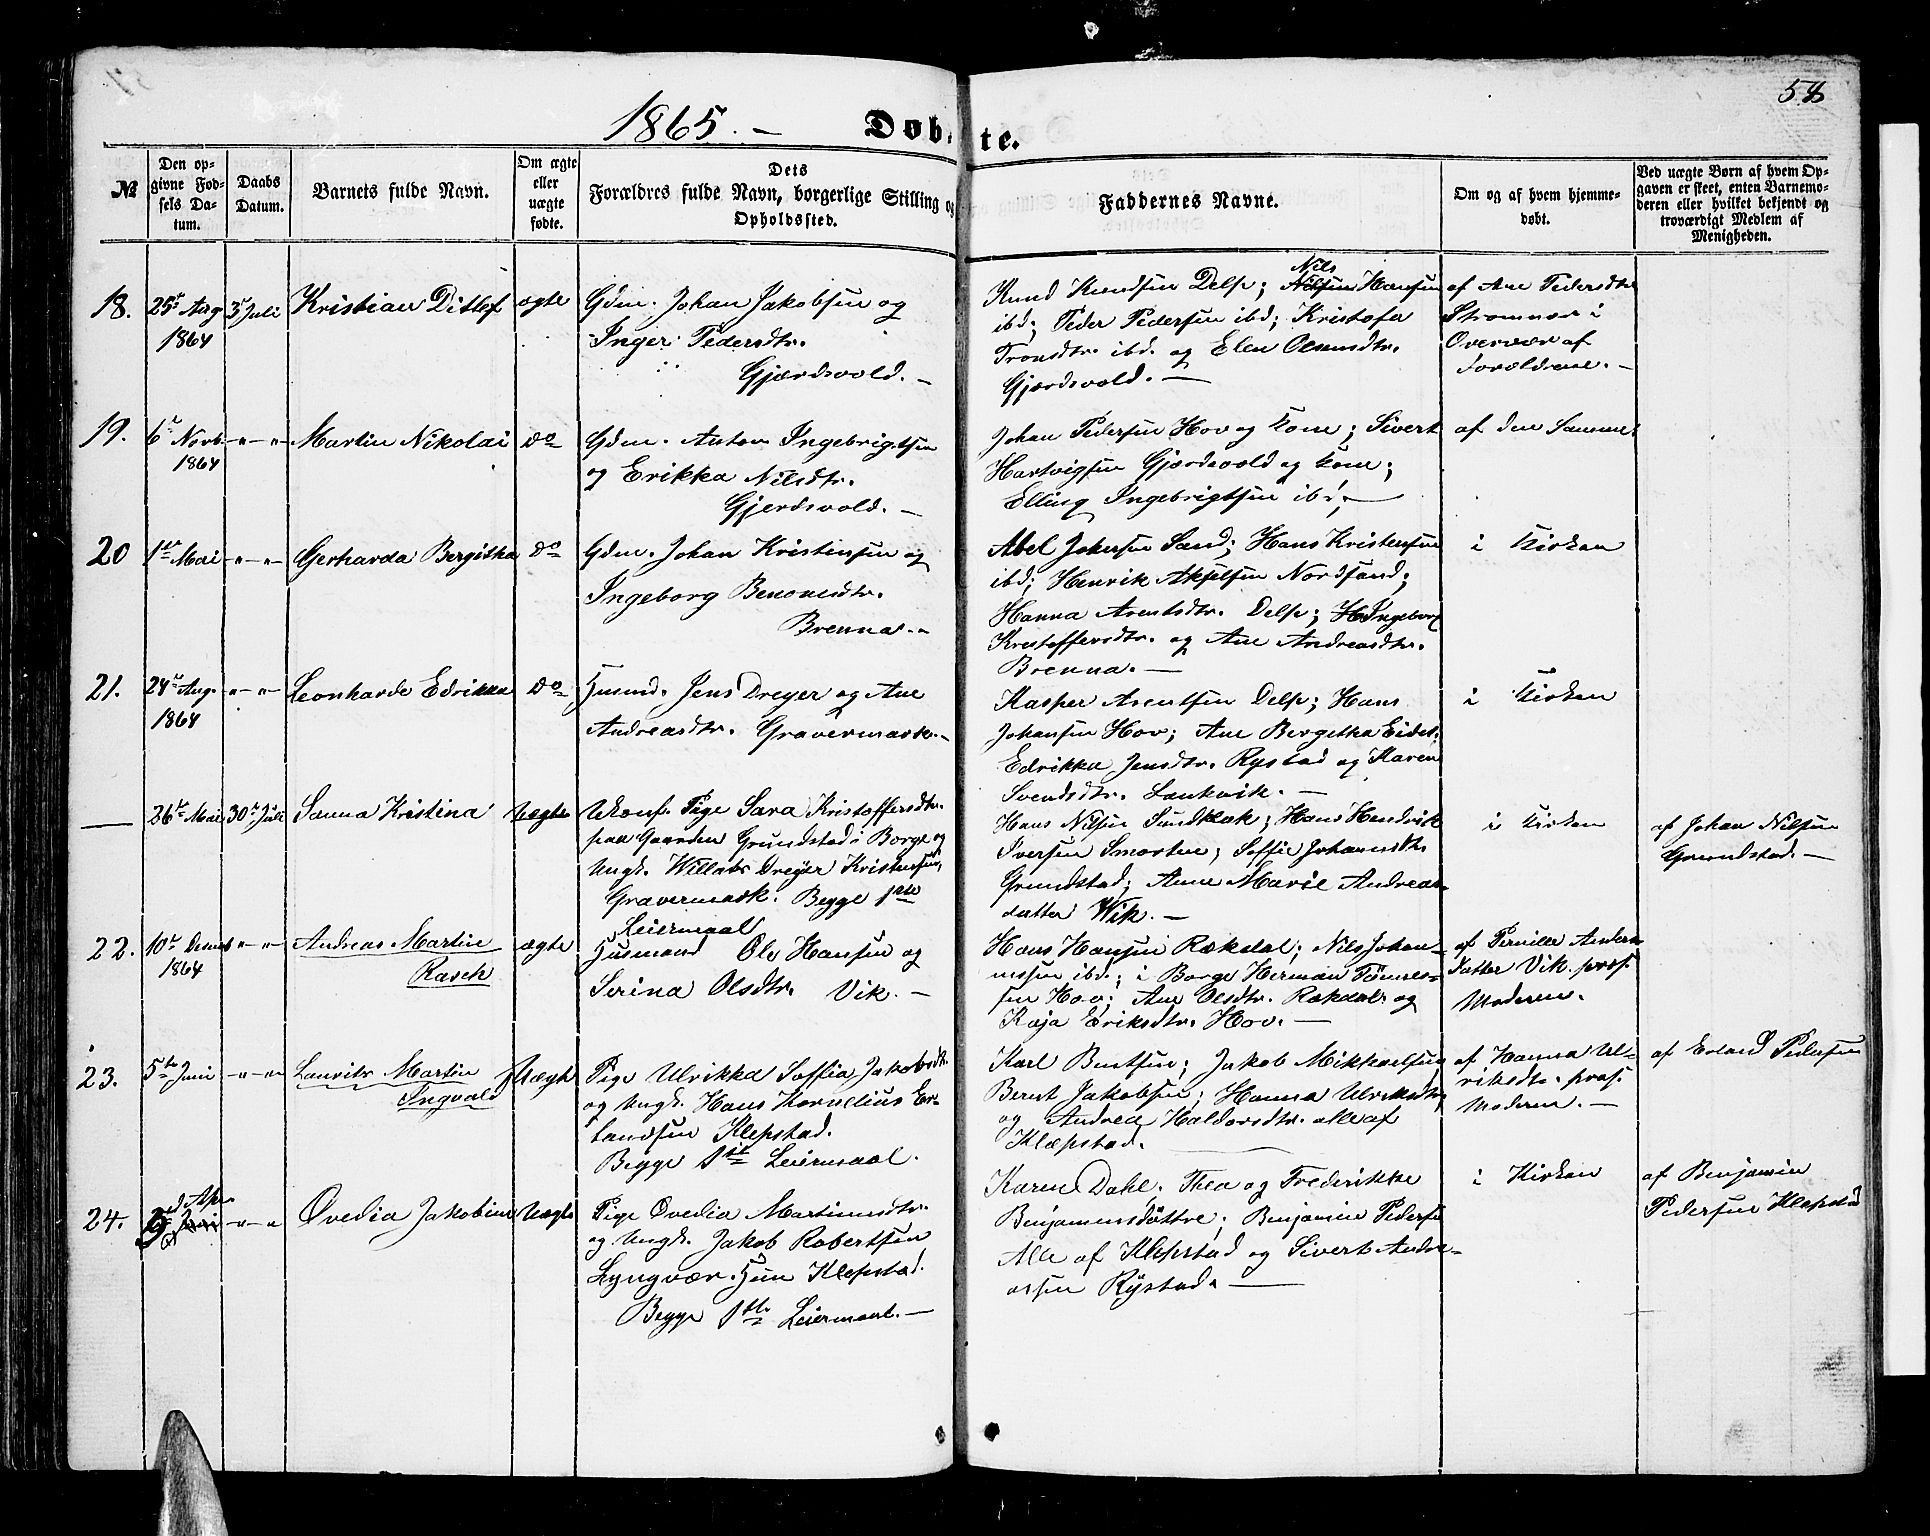 58
1865. – Døbte.
№
Den opgivne Fødsels Datum.
Daabs Datum.
Barnets fulde Navn.
Om ægte eller uægte fødte.
Dets Forældres fulde Navn, borgerlige Stilling og Opholdssted.
Faddernes Navne.
Om og af hvem hjemmedøbt.
Ved uægte Børn af hvem Opgaven er skeet, enten Barnemoderen eller hvilket bekjendt og troværdigt Medlem af Menigheden.
18. 25de Aug 1864 3de Juli Kristian Ditlef ægte
Gdm. Johan Jakobsen og
Inger Pedersdtr.
Gjærdsvold. –
Knud Knudsen Delp; Nils Hansen
ibd; Peder Pedersen ibd; Kristofa
Tronsdtr. ibd. og Elen Olsensdtr.
Gjærdsvold. –
af Ane Pedersdtr
Strømnæs i
Overvær af
Forældrene. –
19. 6te Novb. 1864 – " – " Martin Nikolai Do
Gdm. Anton Ingebrigtsen
og Erikka Nilsdtr.
Gjerdsvold. –
Johan Pedersen Hov og Kone; Sivert
Hartvigsen Gjærdsvold og Kone;
Elling Ingebrigtsen ibd; –
af den Samme
20 1ste Mai – " – " Gerharda Bergitha Do
Gdm. Johan Kristensen og
Ingeborg Benonisdtr.
Brenna. –
Abel Johnsen Sand; Hans Kristensen
ibd; Henrik Akselsen Nordsand;
Hanna Arentsdtr. Delp; Ingeborg
Kristoffersdtr. og Ane Andreasdtr.
Brenna. –
i Kirken
21. 24de Aug. 1864 – " – " Leonharde Edrikka Do
Husmd. Jens Dreyer og Ane
Andreasdtr. Gravermark. –
Kasper Arentsen Delp; Hans
Johansen Hov; Ane Bergitha Eidet
Edrikka Jensdtr. Rystad og Karen
Svendsdtr. Laukvik. –
i Kirken
— 26de Mai 30te Juli Sanna Kristina Uægte
Ukonf. Pige Sara Kristoffersdtr.
paa Gaarden Grundstad i Borge og
Ungk. Willats Dreyer Kristensen,
Gravermark. Begge 1ste
Leiermaal
Hans Nilsen Sundklak; Hans Hendrik
Iversen Smorten; Soffie Johansdtr.
Grundstad; Anne Marie Andreas-
datter Wik. –
i Kirken
af Johan Nilsen
Grundstad. –
22. 10de Decemb 1864 – " – " Andreas Martin
Rasch ægte
Husmand Ole Hansen og
Serina Olsdtr. Vik. –
Hans Hansen Rækdal; Nils Johan-
nessen ibd.; i Borge Herman Tønnes-
sen Hov; Ane Olsdtr. Rækdal og
Kaja Eriksdtr. Hov. –
af Pernille Anders-
datter Vik. præs.
Moderen.
23. 5te Juni – " – " Laurits Martin
Ingvald Uægte
Pige Ulrikka Soffia Jakobsdtr.
og Ungk. Hans Kornelius Er-
landsen Klepstad.
Begge 1ste Leiermaal.
Karl Bentsen; Jakob Mikkaelsen;
Bernt Jakobsen; Hanna Ulriksdtr,
og Andrea Haldorsdtr. alle af
Klæpstad.
af Hanna Ul-
riksdtr. præs.
Moderen. –
af Erland Pedersen
24. – " – " Ovedia Jakobine Uægte
Pige Ovedia Martinusdtr.
og Ungk. Jakob Robertsen
Lyngvær. Hun Klepstad.
Begge 1ste Leiermaal. –
Karen Dahl, Thea og Frederikke
Benjaminsdøttre; Benjamin Pedersen
Alle af Klepstad og Sivert Andre-
assen Rystad. –
i Kirken
af Benjamin
Pedersen Klepstad